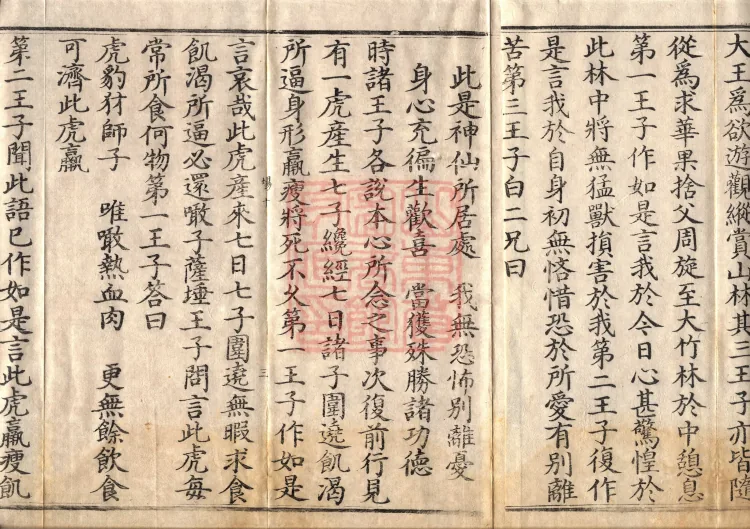 大王為欲遊觀縱賞山林其三王子亦皆隨
從為求華果捨父周旋至大竹林於中憩息
第一王子作如是言我於今日心甚驚惶於
此林中將無猛獸損害於我第二王子復作
是言我於自身初無悋惜恐於所愛有別離
苦第三王子白二兄曰
此是神仙所居處　我無恐怖別離憂
身心充徧生歡喜　當獲殊勝諸功德
時諸王子各說本心所念之事次復前行見
有一虎產生七子纔經七日諸子圍遶飢渴
所逼身形羸瘦將死不久第一王子作如是
言哀哉此虎產來七日七子圍遶無暇求食
飢渴所逼必還噉子薩埵王子問言此虎每
常所食何物第一王子答曰
虎豹犲師子　唯噉熱血肉　更無餘飲食
可濟此虎羸
第二王子聞此語已作如是言此虎羸瘦飢